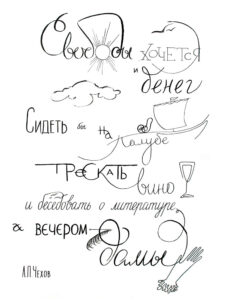 Свободы хочется
и денег
Сидеть бы на палубе
трескать
вино
и беседовать о литературе,
а вечером дамы
А.П.Чехов